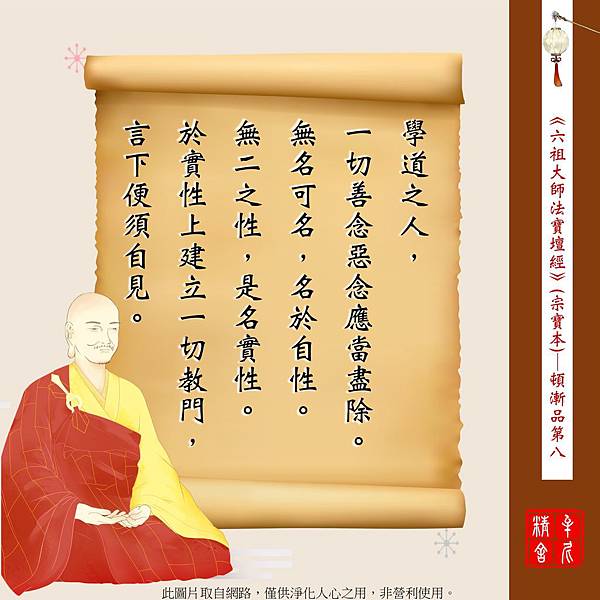 學道之人，
一切善念惡念應當盡除。
無名可名，名於自性。
無二之性，是名實性。
於實性上建立一切教門，
言下便須自見。
《六祖大師法寶壇經》(宗寶本)—頓漸品第八
精舍
此圖片取自網路，僅供淨化人心之用，非營利使用。